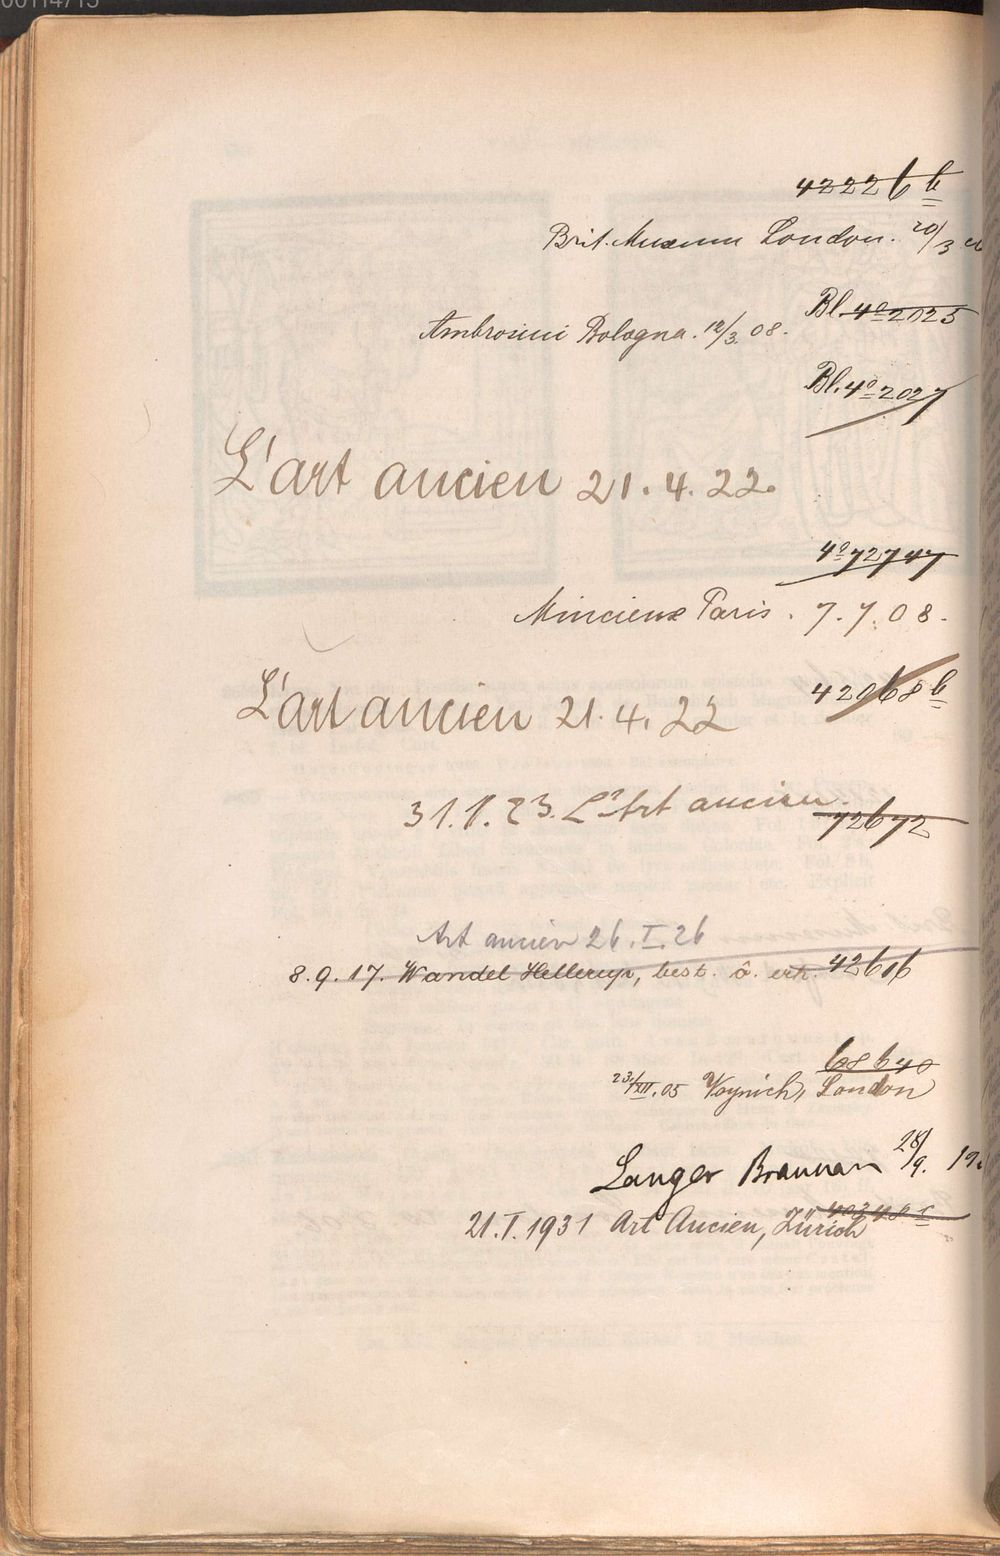 42226 b
Brit. Museum London. 20/3
Bl. 4º 2025
Ambrosini Bologna. 12/3. 08.
Bl. 4º 2027
L'art ancien 21. 4. 22.
4º 72747
Mincieux Paris. 7. 7. 08.
42968 b
L'art ancien 21. 4. 22
31. 1. 23. L'Art ancien.
72672
Art ancien 26. I. 26
8. 9. 17. Wandel Hellerup, best. 42616
68640
23/XII. 05 Voynich, London
Langer Braunau 28/9.
21. I. 1931 Art Ancien, Zürich